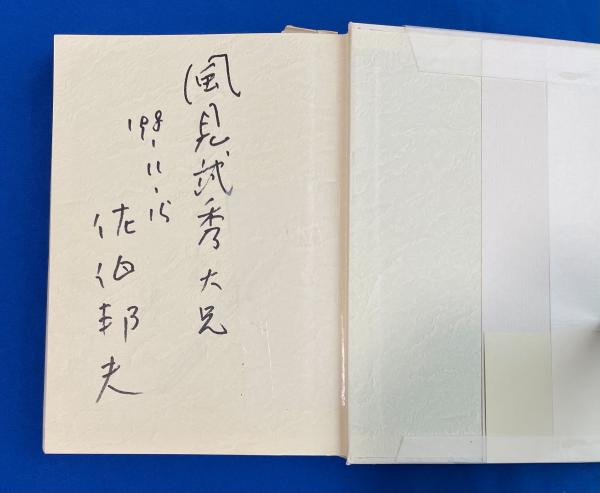 風見武秀大兄
198-11-15
佐伯邦夫